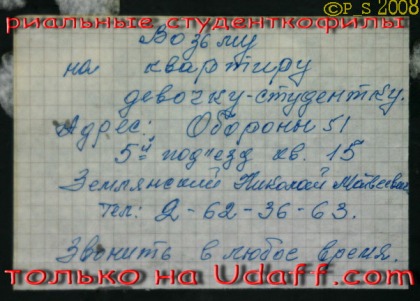 ©P_S 2008
риальные студенткофилы
Возьму
на квартиру
девочку-студентку.
Адрес: Обороны 51
5й подъезд кв. 15
Землянский Николай Матвеевич
Тел: 2-62-36-63.
Звонить в любое время.
только на Udaff.com